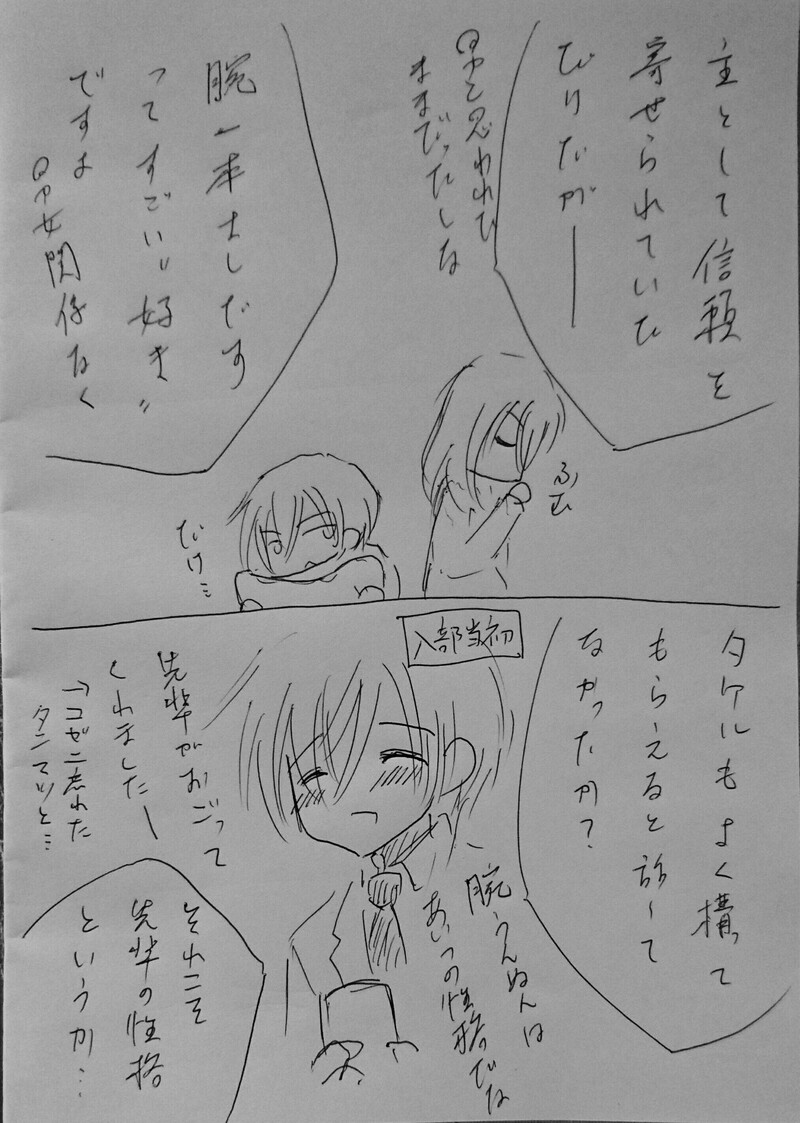 主として信頼を
寄せられていた
だけだが——
男と思われた
ままだったしな
腕一本すしだす
ってすごい"好き"
ですよ
男女関係なく
ふむ
だけ…
入部当初
タケルもよく構って
もらえると話して
なかったか?
先輩がおごって
くれましたー
→コゼニ忘れた
タンマツと…
腕うんぬんは
あいつの性格だな
それこそ
先輩の性格
というか…